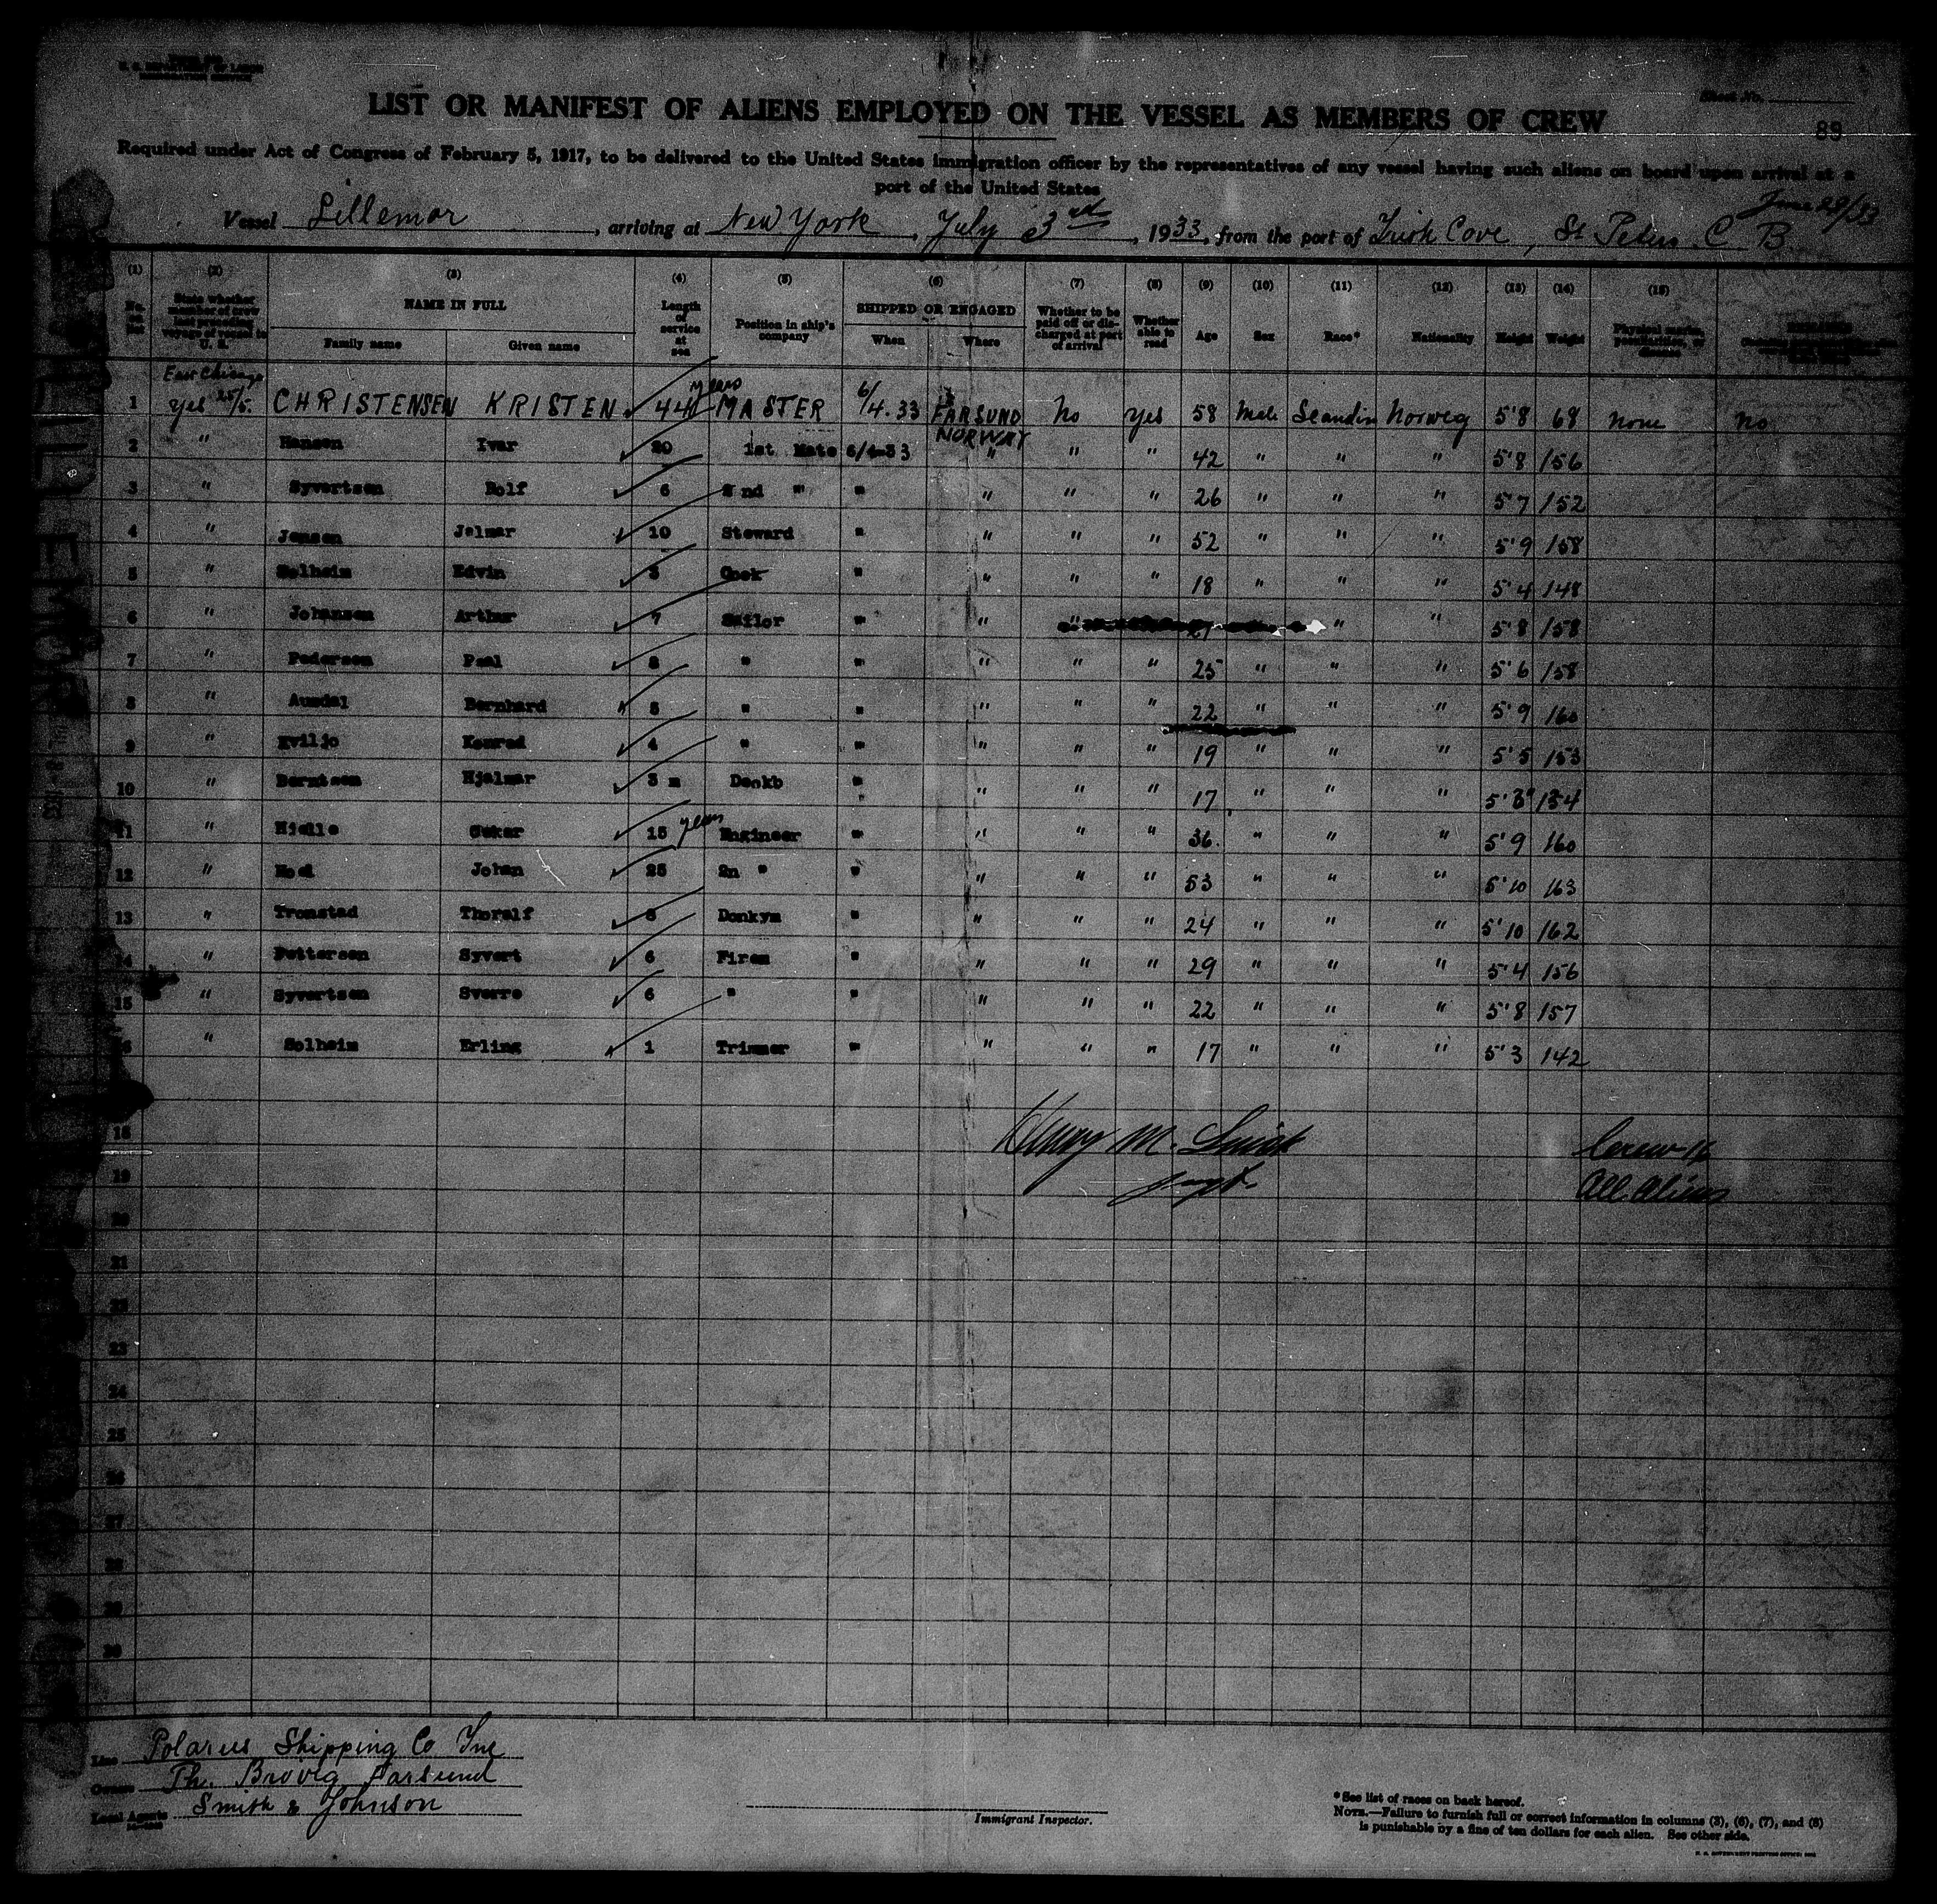 U. S. DEPARTMENT OF LABOR
IMMIGRATION SERVICE
Sheet No.
LIST OR MANIFEST OF ALIENS EMPLOYED ON THE VESSEL AS MEMBERS OF CREW
89
Required under Act of Congress of February 5, 1917, to be delivered to the United States immigration officer by the representatives of any vessel having such aliens on board upon arrival at a
port of the United States
Vessel Lillemor, arriving at New York, July 3rd, 1933, from the port of Irish Cove, St Peters C B
(1) (2) (3) (4) (5) (6) (7) (8) (9) (10) (11) (12) (13) (14) (15)
No. on list State whether member of crew last previous voyage of vessel to U. S. NAME IN FULL Length of service at sea Position in ship's company SHIPPED OR ENGAGED Whether to be paid off or discharged at port of arrival Whether able to read Age Sex Race* Nationality Height Weight Physical marks, peculiarities, or disease
Family name Given name When Where
East Chicago
1 Yes 25/5. CHRISTENSEN KRISTEN 44 years MASTER 6/4.33 FARSUND NORWAY No yes 58 Male Scandin Norweg 5'8 68 none no
2 " Hansen Ivar 20 1st Mate 6/4-33 " " " 42 " " " 5'8 156
3 " Syvertsen Rolf 6 2nd " " " " " 26 " " " 5'7 152
4 " Jensen Jelmar 10 Steward " " " " 52 " " " 5'9 158
5 " Solheim Edvin 3 Cook " " " " 18 " " " 5'4 148
6 " Johansen Arthur 7 Sailor " " " " " 5'8 158
7 " Pedersen Paal 8 " " " " " 25 " " " 5'6 158
8 " Aumdal Bernhard 8 " " " " " 22 " " " 5'9 160
9 " Kviljo Konrad 4 " " " " " 19 " " " 5'5 153
10 " Berntsen Hjalmar 3 m Deckb " " " " 17 " " " 5'3" 134
11 " Hielle Oskar 15 years Engineer " " " " 36 " " " 5'9 160
12 " Johan 25 2n " " " " " 53 " " " 5'10 163
13 " Tronstad Thoralf 8 Donkym " " " " 24 " " " 5'10 162
14 " Pettersen Syvert 6 Firem " " " " 29 " " " 5'4 156
15 " Syvertsen Sverre 6 " " " " " 22 " " " 5'8 157
16 " Solheim Erling 1 Trimmer " " " " 17 " " " 5'3 142
18
Henry M. Smith
Crew 16
19
All aliens
20
21
22
23
24
25
26
27
28
29
30
Line Polarus Shipping Co Inc
Owners Th. Brovig, Farsund
Local Agents Smith & Johnson
Immigrant Inspector.
* See list of races on back hereof.
NOTE.—Failure to furnish full or correct information in columns (3), (6), (7), and (8)
is punishable by a fine of ten dollars for each alien. See other side.
U. S. GOVERNMENT PRINTING OFFICE